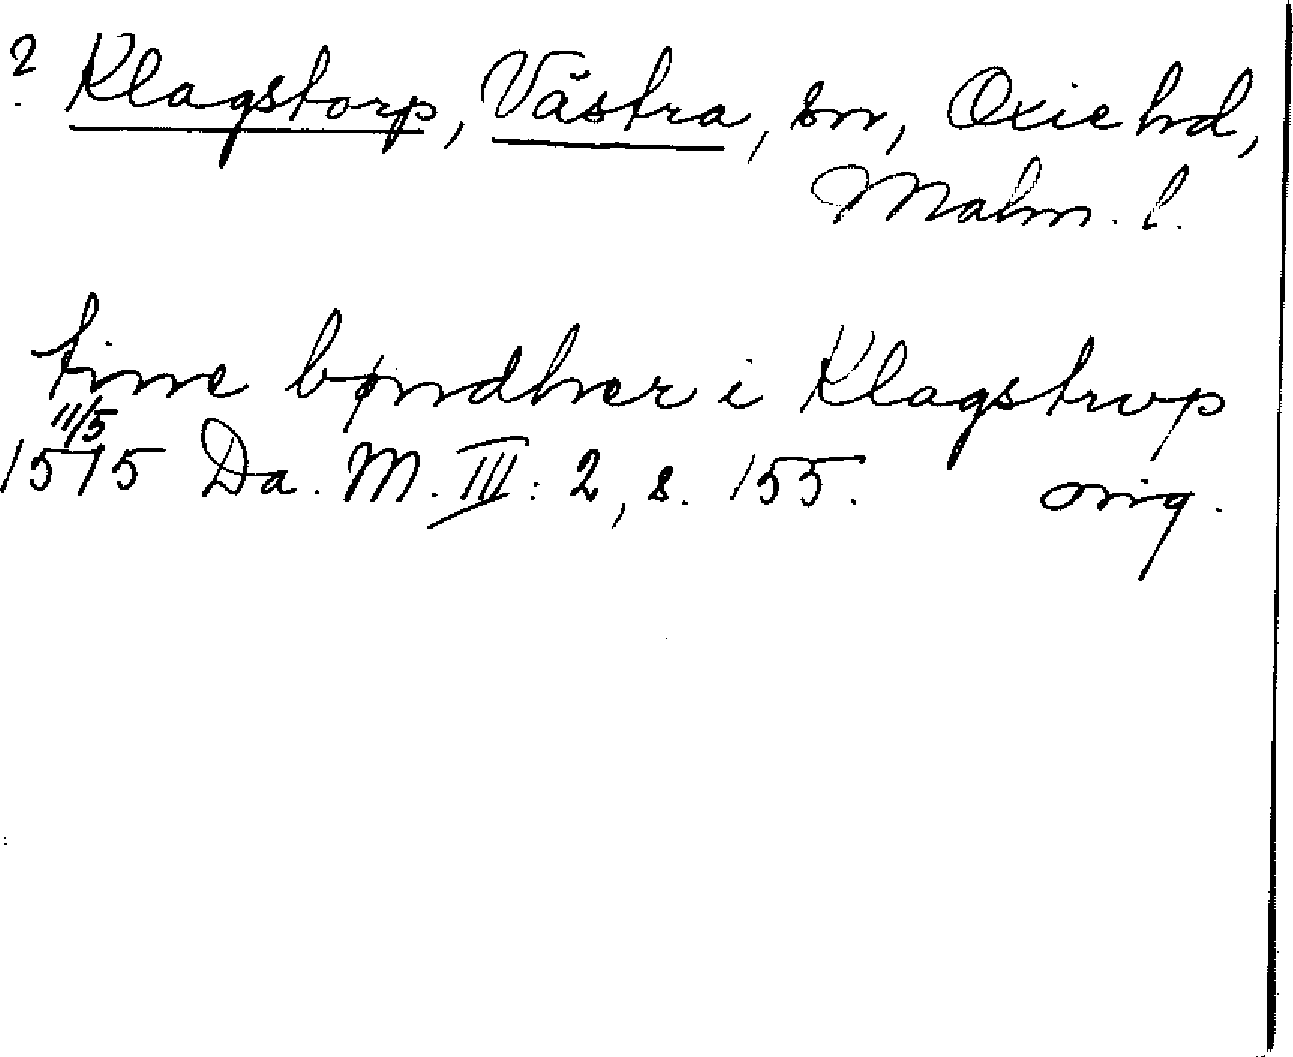 ? Klagstorp, Västra, sn, Oxie hd,
Malm. l.
tinne bøndher i Klagstrup
11/5
1515 Da. M. III: 2, s. 155. orig.